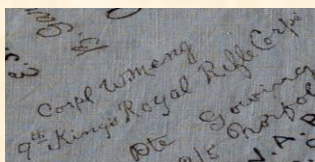 Corpl W Mong
9th Kings Royal Rifle Corps
Pte Gowing
2/5 Norfol
V. A. B